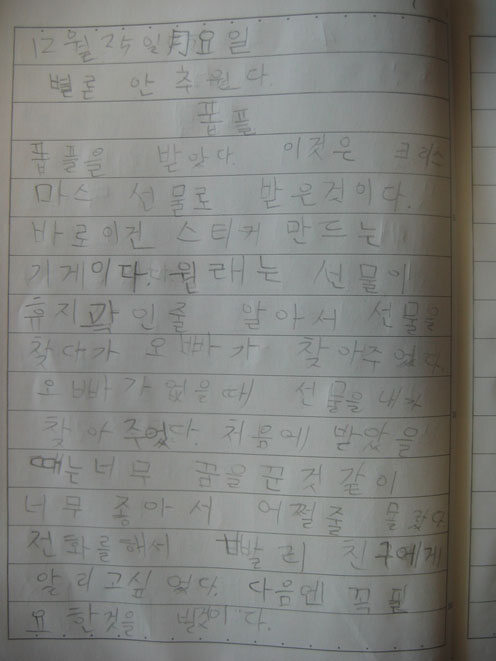 12월 25일 月요일
별론 안 추웠다.
폽플
폽플을 받았다. 이것은 크리스
마스 선물로 받은것이다.
바로이건 스티커 만드는
기게이다. 원래는 선물이
휴지곽인줄 알아서 선물을
찾다가 오빠가 찾아주었다.
오빠가없을때 선물을내가
찾아주었다. 처음에 받았을
때는너무 꿈을꾼것같이
너무 좋아서 어쩔줄 몰랐다
전화를해서 빨리 친구에게
알리고싶었다. 다음엔 꼭필
요한것을 받을것이다.